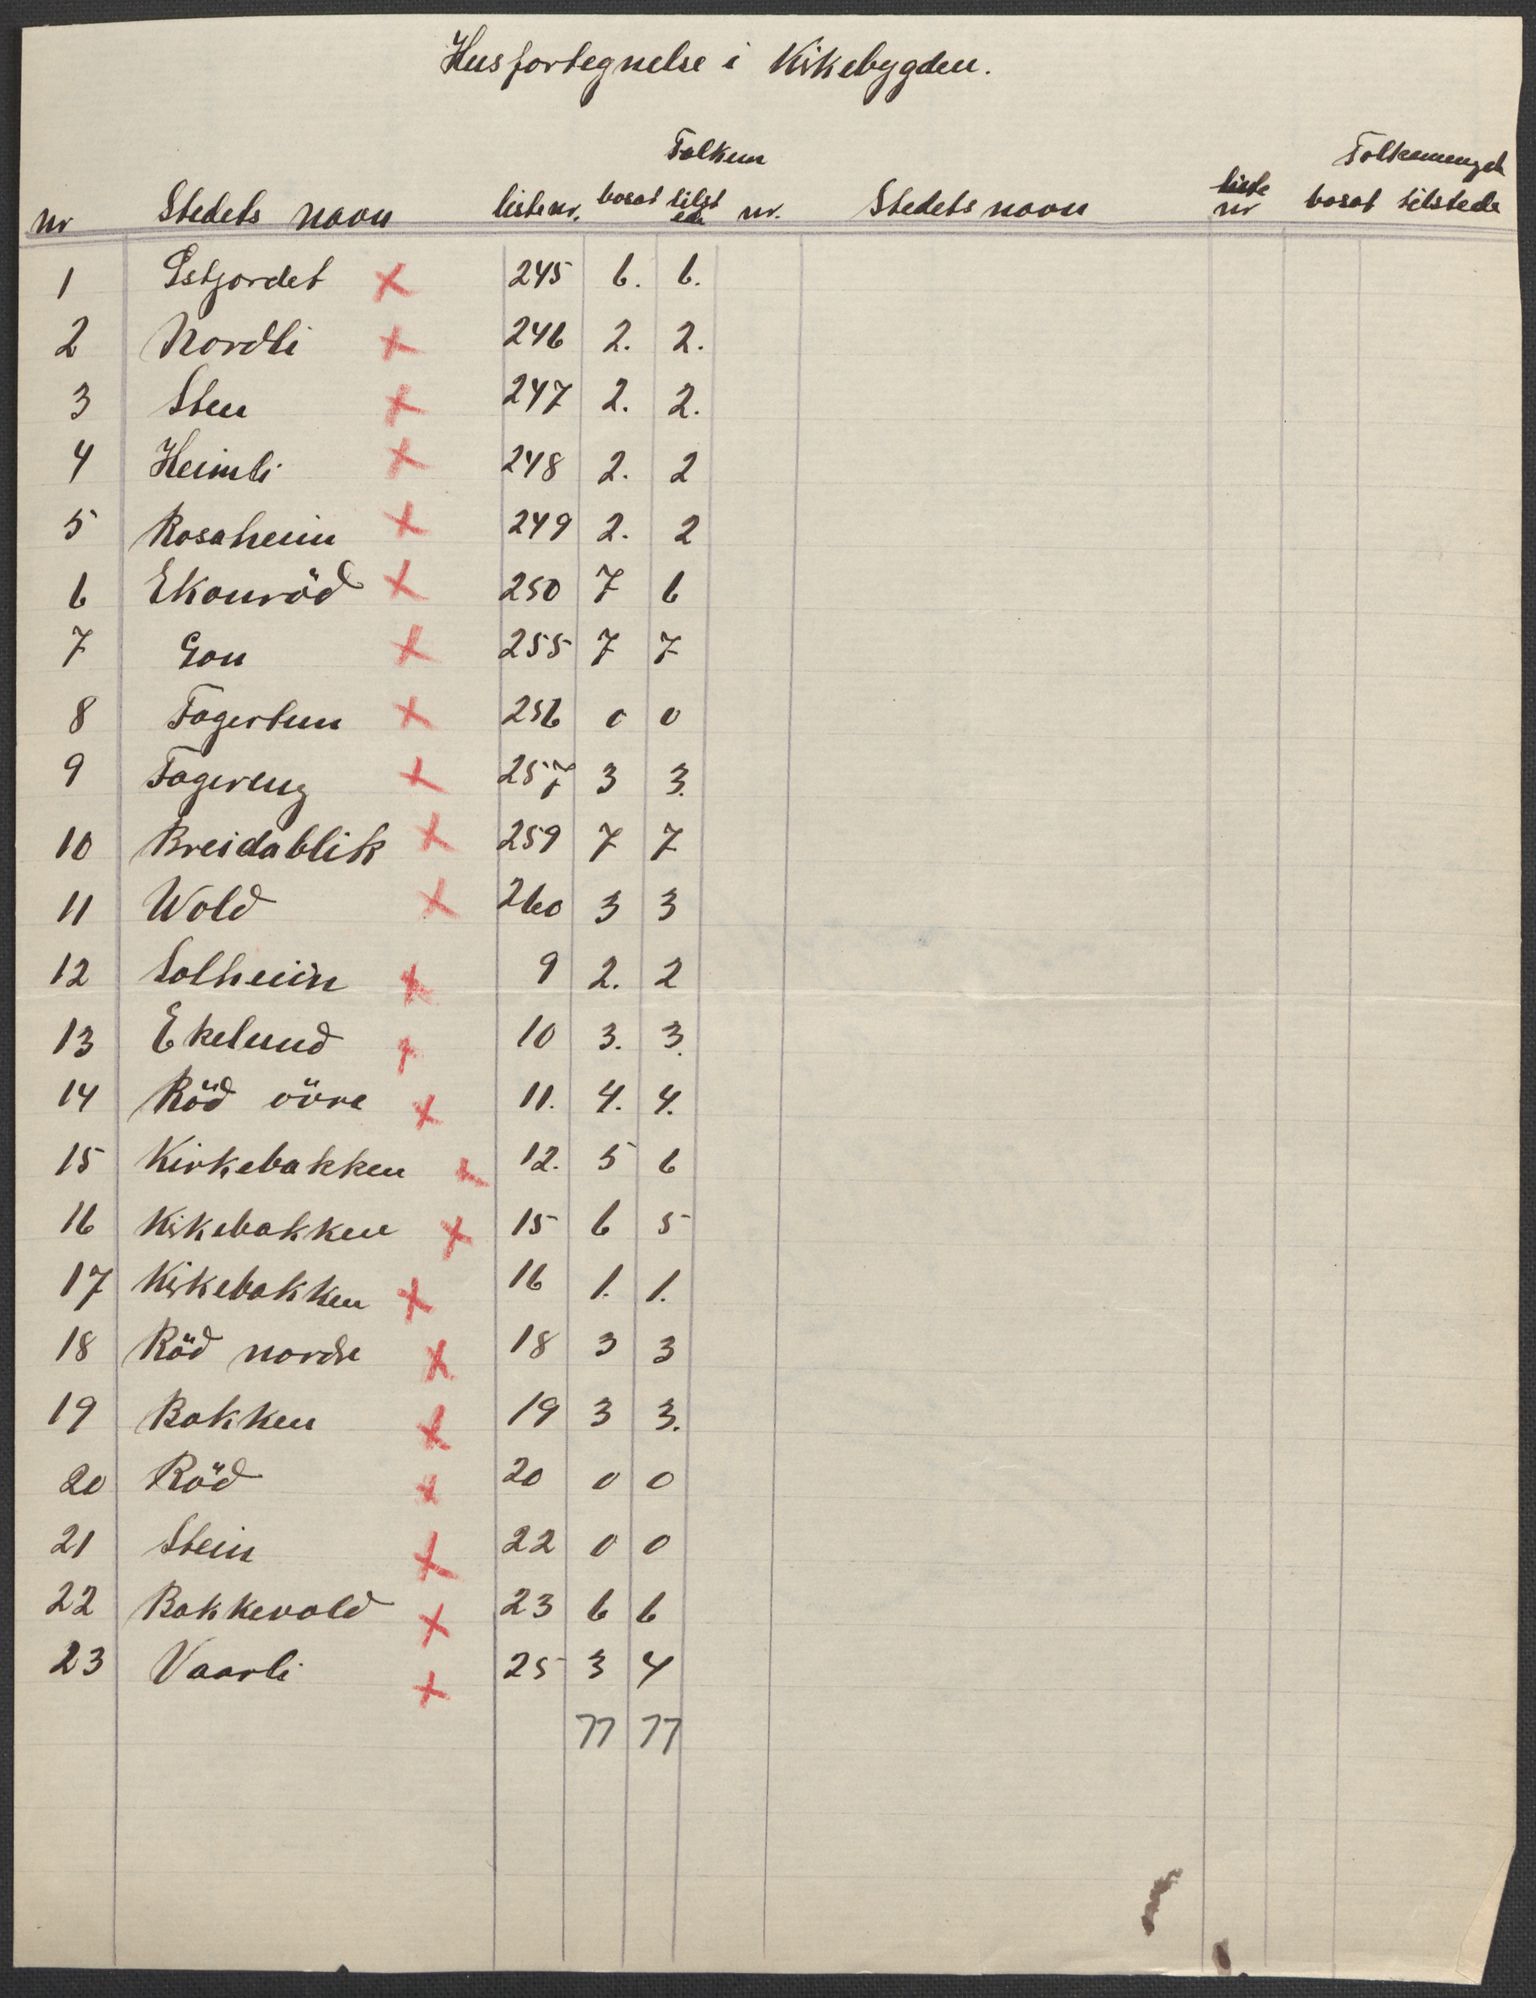 Husfortegnelse i Kirkebygden.
Folkem Folkemengde
nr Stedets navn listenr. bosat tilst ede nr. Stedets navn liste nr bosat tilstede
1 Østjordet x 245 6. 6.
2 Nordli x 246 2. 2.
3 Sten x 247 2. 2.
4 Heimli x 248 2. 2
5 Rosaheim x 249 2. 2
6 Ekonröd x 250 7 6
7 Gon x 255 7 7
8 Fagertun x 256 0 0
9 Fagereng x 257 3 3.
10 Breidablik x 259 7 7
11 Wold x 260 3 3
12 Solheim x 9 2. 2
13 Ekelund x 10 3. 3.
14 Röd övre x 11. 4. 4.
15 Kirkebakken x 12. 5 6
16 Kirkebakken x 15 6 5
17 Kirkebakken x 16 1. 1.
18 Röd nordre x 18 3 3
19 Bakken x 19 3 3.
20 Röd x 20 0 0
21 Stein x 22 0 0
22 Bakkevold x 23 6 6
23 Vaarli x 25 3 4
77 77